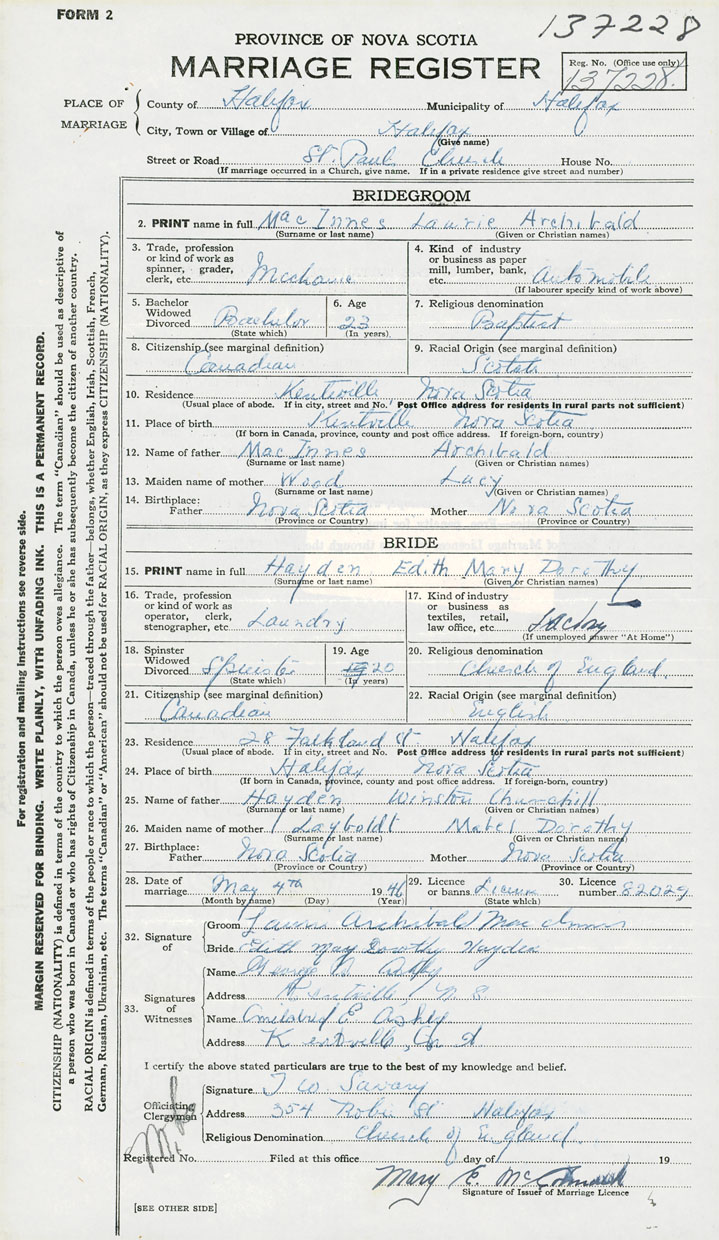 FORM 2
137228
PROVINCE OF NOVA SCOTIA
MARRIAGE REGISTER
Reg. No. (Office use only)
137228.
PLACE OF MARRIAGE
County of Halifax Municipality of Halifax
City, Town or Village of Halifax
(Give name)
Street or Road St. Pauls Church House No.
(If marriage occurred in a Church, give name. If in a private residence give street and number)
BRIDEGROOM
2. PRINT name in full MacInnes Laurie Archibald
(Surname or last name) (Given or Christian names)
3. Trade, profession or kind of work as spinner, grader, clerk, etc. Mechanic
4. Kind of industry or business as paper mill, lumber, bank, etc. Automobile
(If labourer specify kind of work above)
5. Bachelor Widowed Divorced Bachelor
(State which)
6. Age 23
(In years)
7. Religious denomination Baptist
8. Citizenship (see marginal definition) Canadian
9. Racial Origin (see marginal definition) Scotch
10. Residence Kentville Nova Scotia
(Usual place of abode. If in city, street and No. Post Office address for residents in rural parts not sufficient)
11. Place of birth Kentville Nova Scotia
(If born in Canada, province, county and post office address. If foreign-born, country)
12. Name of father MacInnes Archibald
(Surname or last name) (Given or Christian names)
13. Maiden name of mother Wood Lucy
(Surname or last name) (Given or Christian names)
14. Birthplace: Father Nova Scotia Mother Nova Scotia
(Province or Country) (Province or Country)
BRIDE
15. PRINT name in full Hayden Edith Mary Dorothy
(Surname or last name) (Given or Christian names)
16. Trade, profession or kind of work as operator, clerk, stenographer, etc. Laundry
17. Kind of industry or business as textiles, retail, law office, etc. Factory
(If unemployed answer "At Home")
18. Spinster Widowed Divorced Spinster
(State which)
19. Age 20
(In years)
20. Religious denomination Church of England
21. Citizenship (see marginal definition) Canadian
22. Racial Origin (see marginal definition) English
23. Residence 28 Falkland St Halifax
(Usual place of abode. If in city, street and No. Post Office address for residents in rural parts not sufficient)
24. Place of birth Halifax Nova Scotia
(If born in Canada, province, county and post office address. If foreign-born, country)
25. Name of father Hayden Winston Churchill
(Surname or last name) (Given or Christian names)
26. Maiden name of mother Layboldt Mabel Dorothy
(Surname or last name) (Given or Christian names)
27. Birthplace: Father Nova Scotia Mother Nova Scotia
(Province or Country) (Province or Country)
28. Date of marriage May 4th 1946
(Month by name) (Day) (Year)
29. Licence or banns License
(State which)
30. Licence number 82029
32. Signature of
Groom Laurie Archibald MacInnes
Bride Edith May Dorothy Hayden
33. Signatures of Witnesses
Name George B Ashby
Address Kentville N S
Name Mildred E Ashby
Address Kentville,
I certify the above stated particulars are true to the best of my knowledge and belief.
Officiating Clergyman
Signature T W Savary
Address 354 Robie St Halifax
Religious Denomination Church of England
Registered No. Filed at this office day of 19
Mary E.
Signature of Issuer of Marriage Licence
[SEE OTHER SIDE]
For registration and mailing instructions see reverse side.
MARGIN RESERVED FOR BINDING. WRITE PLAINLY, WITH UNFADING INK. THIS IS A PERMANENT RECORD.
CITIZENSHIP (NATIONALITY) is defined in terms of the country to which the person owes allegiance. The term "Canadian" should be used as descriptive of
a person who was born in Canada or who has rights of Citizenship in Canada, unless he or she has subsequently become the citizen of another country.
RACIAL ORIGIN is defined in terms of the people or race to which the person—traced through the father—belongs, whether English, Irish, Scottish, French,
German, Russian, Ukrainian, etc. The terms "Canadian" or "American" should not be used for RACIAL ORIGIN, as they express CITIZENSHIP (NATIONALITY).